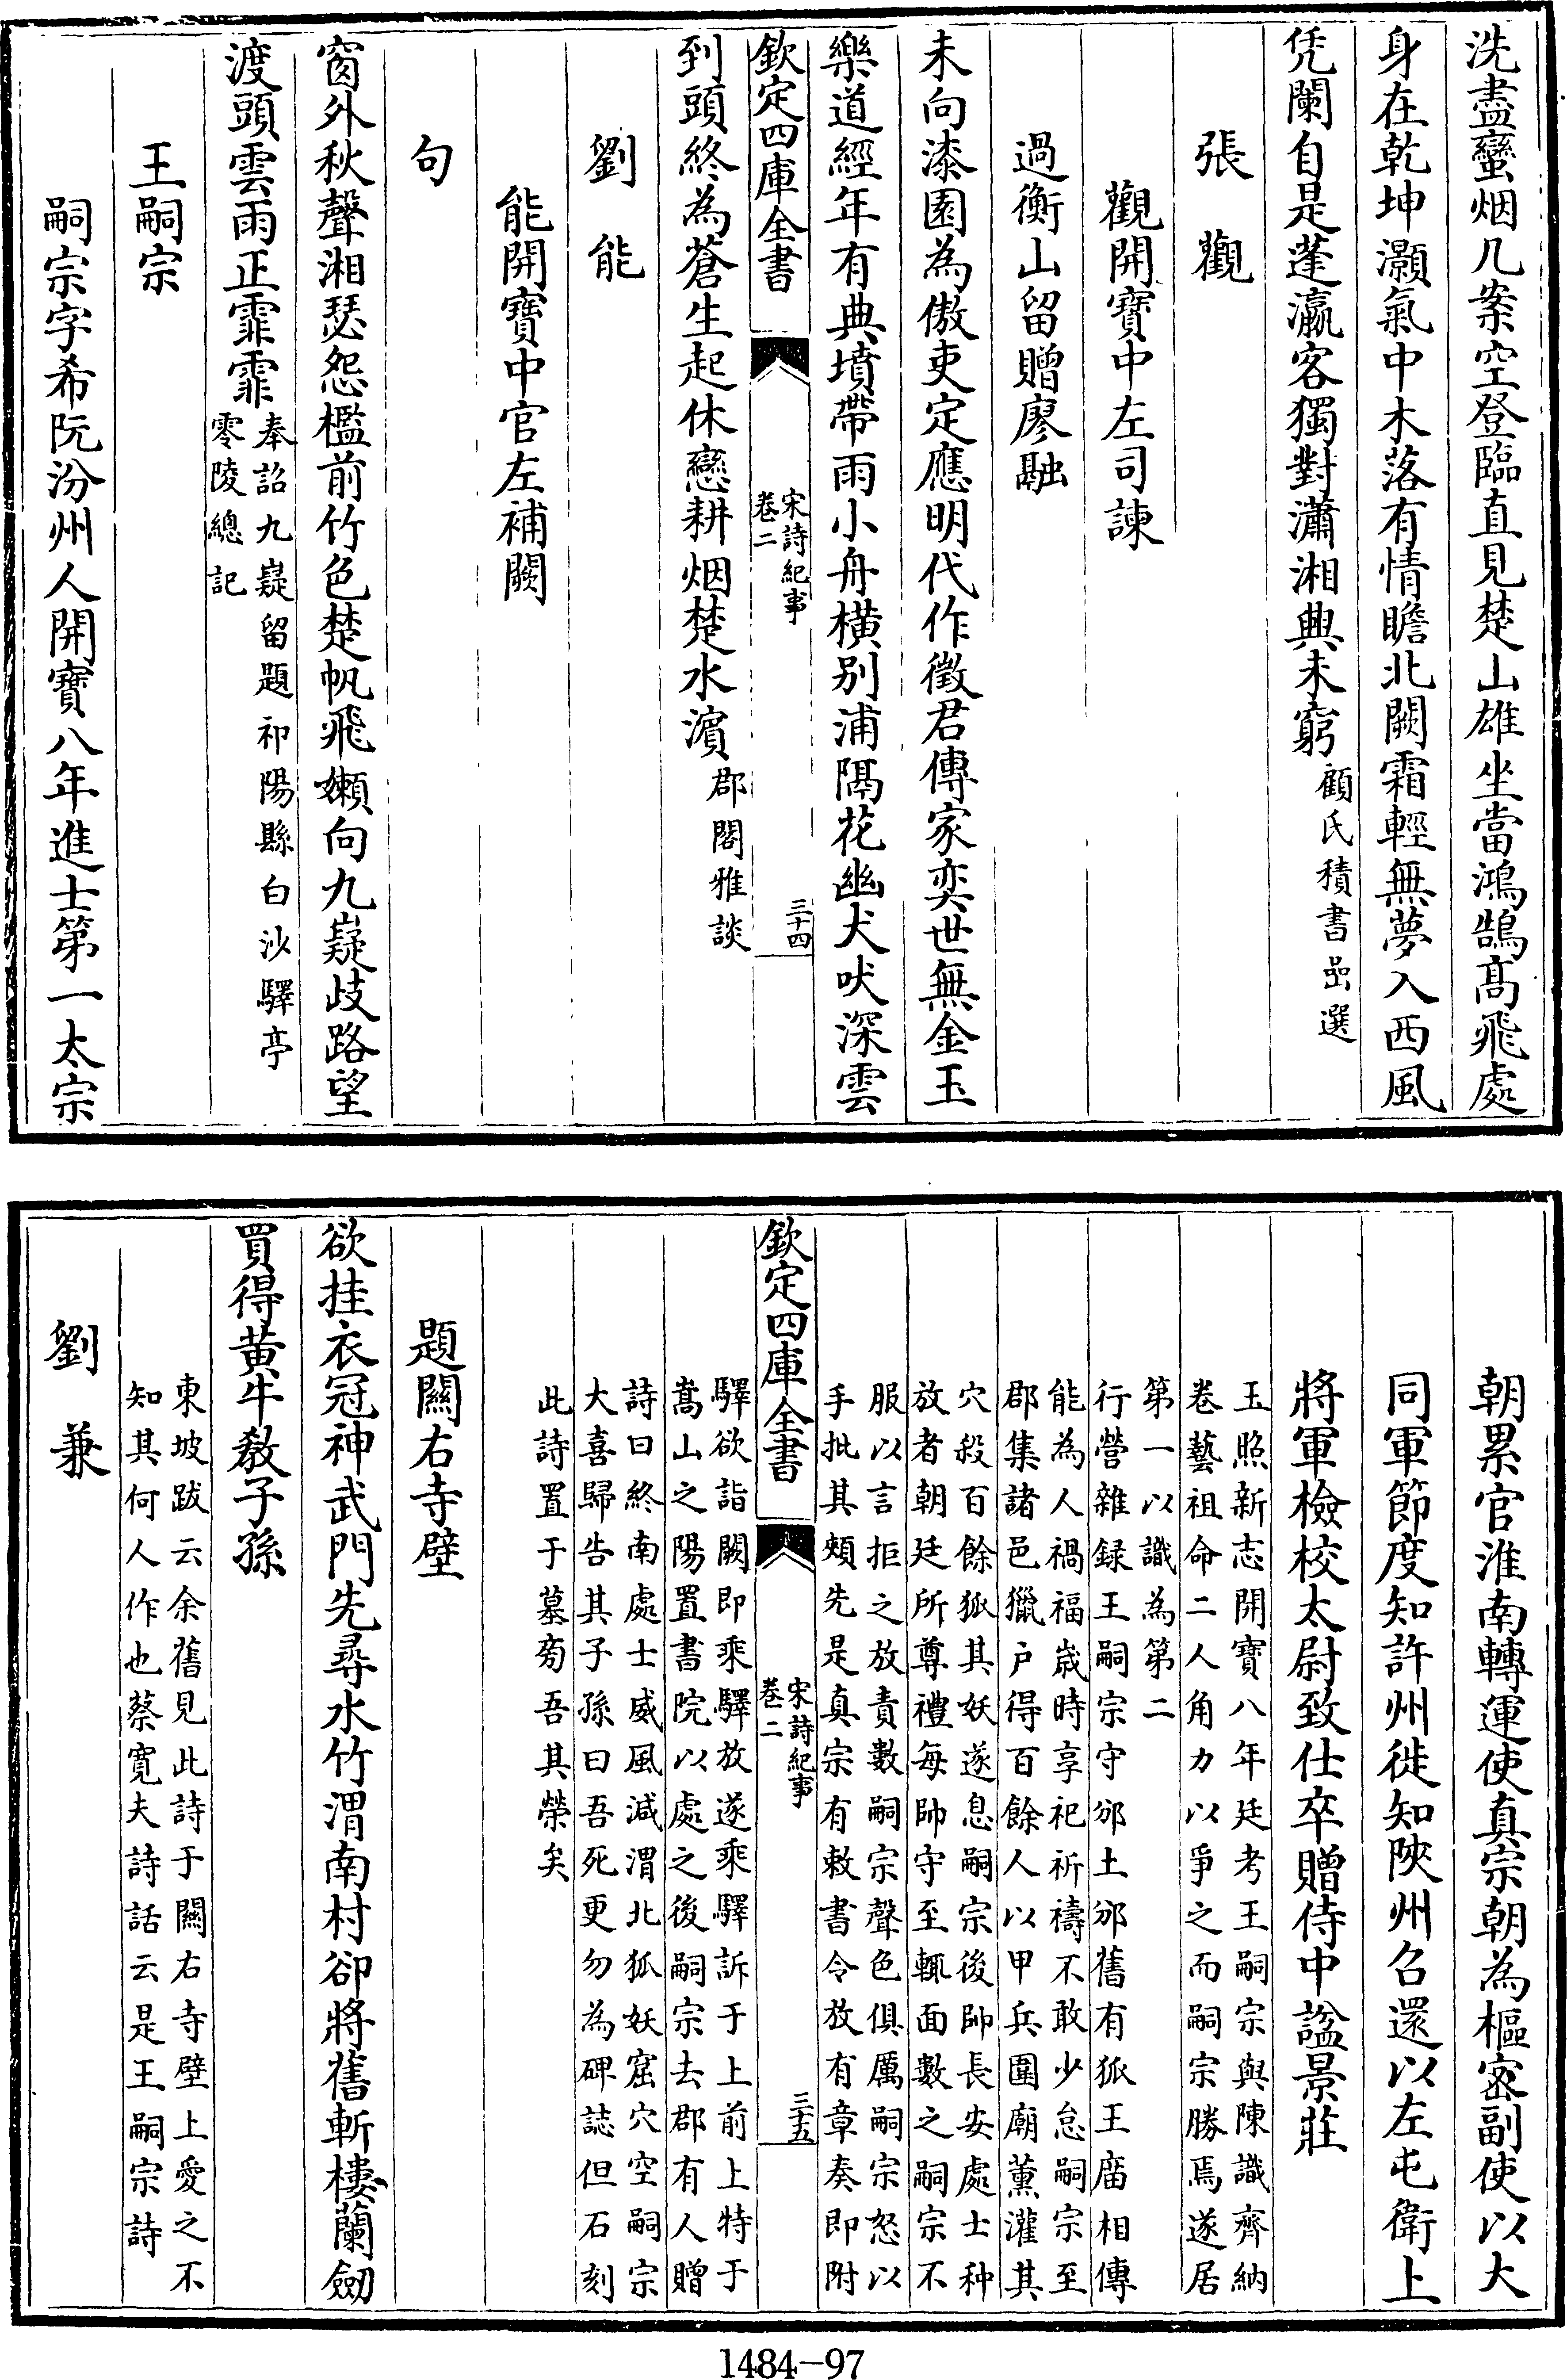 洗盡蠻烟几案空登臨直見楚山雄坐當鴻鵠髙飛處
身在乾坤灝氣中木落有情瞻北闕霜輕無夢入西風
凭闌自是蓬瀛客獨對瀟湘興未窮顧氏積書嵒選
張觀
觀開寶中左司諫
過衡山留贈廖融
未向漆園為傲吏定應明代作徵君傳家奕世無金玉
樂道經年有典墳帶雨小舟横别浦隔花幽犬吠深雲
欽定四庫全書
宋詩紀事
卷二
三十四
到頭終為蒼生起休戀耕烟楚水濵郡閣雅談
劉能
能開寶中官左補闕
句
窗外秋聲湘瑟怨檻前竹色楚帆飛嬾向九嶷歧路望
渡頭雲雨正霏霏奉詔九嶷留題祁陽縣白沙驛亭
零陵總記
王嗣宗
嗣宗字希阮汾州人開寶八年進士第一太宗
朝累官淮南轉運使真宗朝為樞宻副使以大
同軍節度知許州徙知陜州召還以左屯衛上
將軍檢校太尉致仕卒贈侍中諡景莊
玉照新志開寶八年廷考王嗣宗與陳識齊納
卷藝祖命二人角力以爭之而嗣宗勝焉遂居
第一以識為第二
行營雜録王嗣宗守邠土邠舊有狐王廟相傳
能為人禍福嵗時享祀祈禱不敢少怠嗣宗至
郡集諸邑獵户得百餘人以甲兵圍廟薰灌其
穴殺百餘狐其妖遂息嗣宗後帥長安處士种
放者朝廷所尊禮每帥守至輒面數之嗣宗不
服以言拒之放責數嗣宗聲色俱厲嗣宗怒以
手批其頰先是真宗有敕書令放有章奏即附
欽定四庫全書
宋詩紀事
卷二
三十五
驛欲詣闕即乘驛放遂乘驛訴于上前上特于
嵩山之陽置書院以處之後嗣宗去郡有人贈
詩曰終南處士威風減渭北狐妖窟穴空嗣宗
大喜歸告其子孫曰吾死更勿為碑誌但石刻
此詩置于墓旁吾其榮矣
題關右寺壁
欲挂衣冠神武門先尋水竹渭南村卻將舊斬樓蘭劒
買得黄牛教子孫
東坡跋云余舊見此詩于關右寺壁上愛之不
知其何人作也蔡寛夫詩話云是王嗣宗詩
劉兼
1484-97